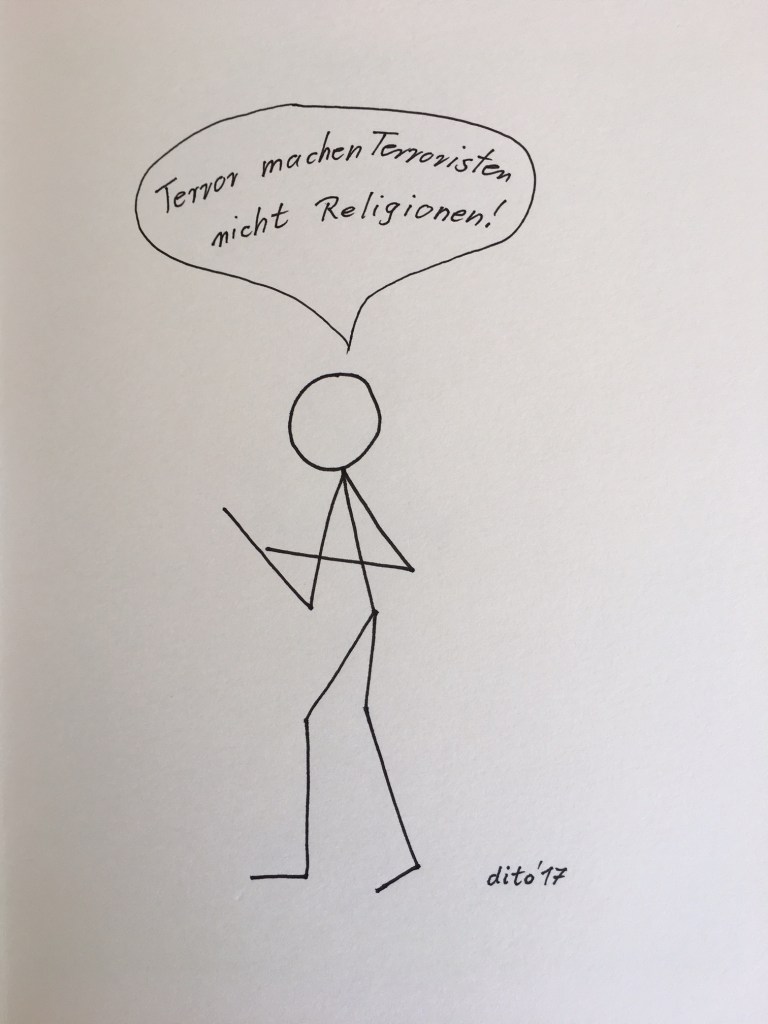 Terror machen Terroristen
nicht Religionen!
dito'17